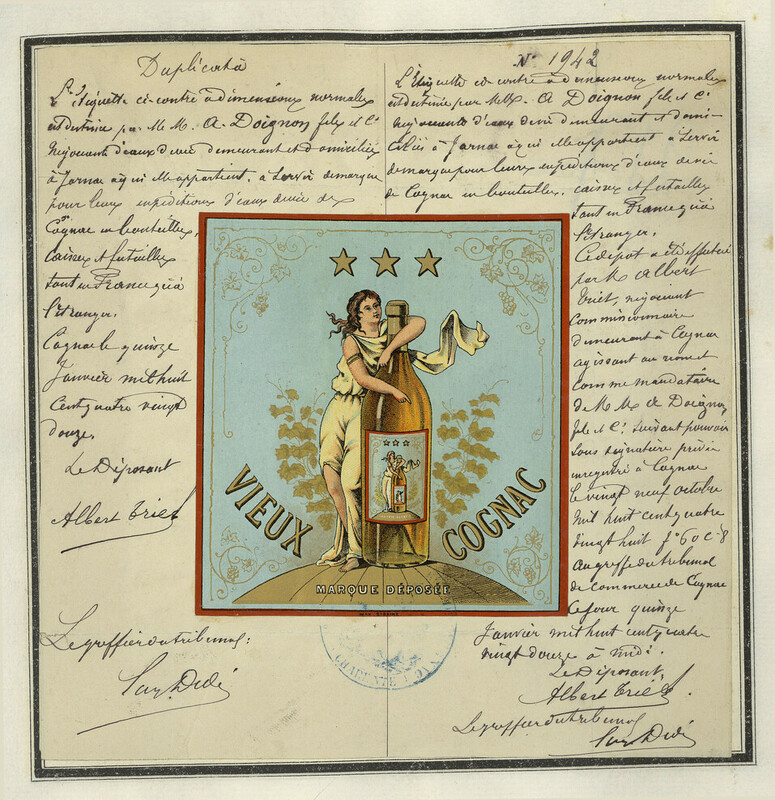 Duplicata
L'Etiquette ci-contre à dimensions normales
est destinée par M. M. A. Doignon fils et Cie
négociants d'eaux de vie demeurant et domiciliés
à Jarnac à qui elle appartient, à servir de marque
pour leurs expéditions d'eaux de vie de
Cognac en bouteilles,
caisses et futailles
tant en France qu'à
l'étranger.
Cognac le quinze
Janvier mil huit
cent quatre vingt
douze.
Le Déposant
Albert Triet
Le greffier du tribunal:
No 1942
L'Etiquette ci-contre à dimensions normales
est destinée par M.M. A Doignon fils et Cie
négociants d'eaux de vie demeurant et domi-
ciliés à Jarnac à qui elle appartient à servir
de marque pour leurs expéditions d'eaux de vie
de Cognac en bouteilles, caisses et futailles
tant en France qu'à
l'étranger.
Ce dépot a été effectué
par M. Albert
Triet, négociant
Commissionnaire
demeurant à Cognac
agissant au nom et
comme mandataire
de M.M. A Doignon,
fils et Cie. Suivant pouvoir
sous signature privée
enregistré à Cognac
le vingt neuf octobre
mil huit cent quatre
vingt huit fo 60 C 8
au greffe du tribunal
de Commerce de Cognac
ce jour quinze
Janvier mil huit cent quatre
vingt douze à midi.
Le Déposant,
Albert Triet.
Le greffier du tribunal
VIEUX COGNAC
MARQUE DÉPOSÉE
CHARENTE